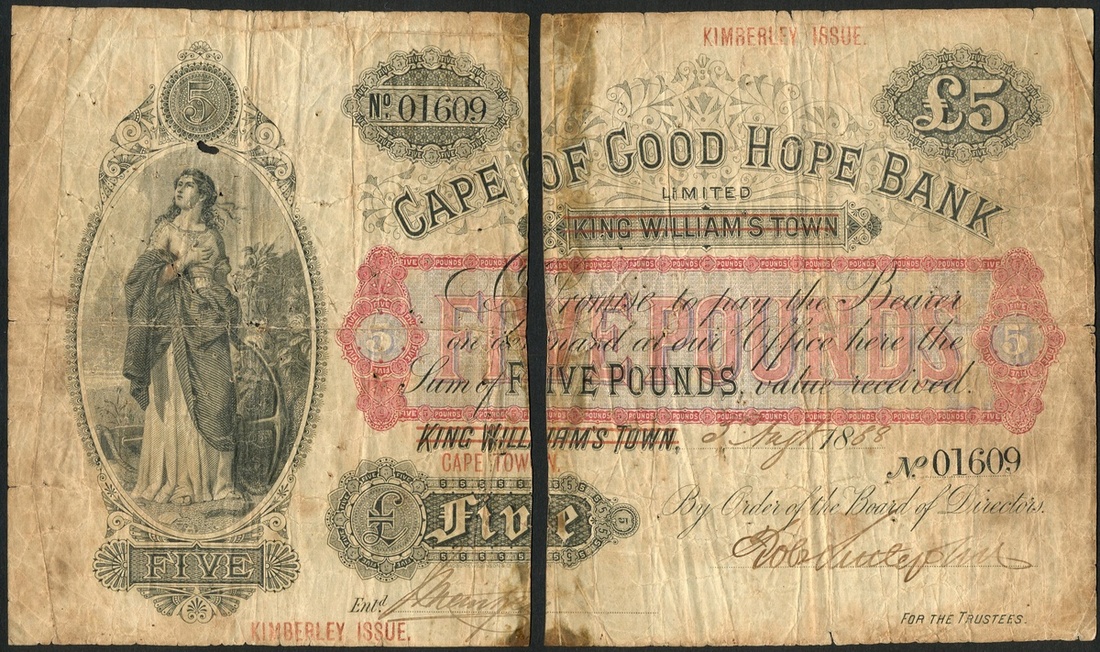 KIMBERLEY ISSUE.
5
No. 01609
£5
CAPE OF GOOD HOPE BANK
LIMITED
KING WILLIAM'S TOWN
FIVE POUNDS
Promise to pay the Bearer
on demand at our Office here the
Sum of FIVE POUNDS value received.
5
5
KING WILLIAM'S TOWN, 3 Augt 1888
CAPE TOWN.
No 01609
£ Five 5
By Order of the Board of Directors.
FIVE
Entd.
FOR THE TRUSTEES.
KIMBERLEY ISSUE.